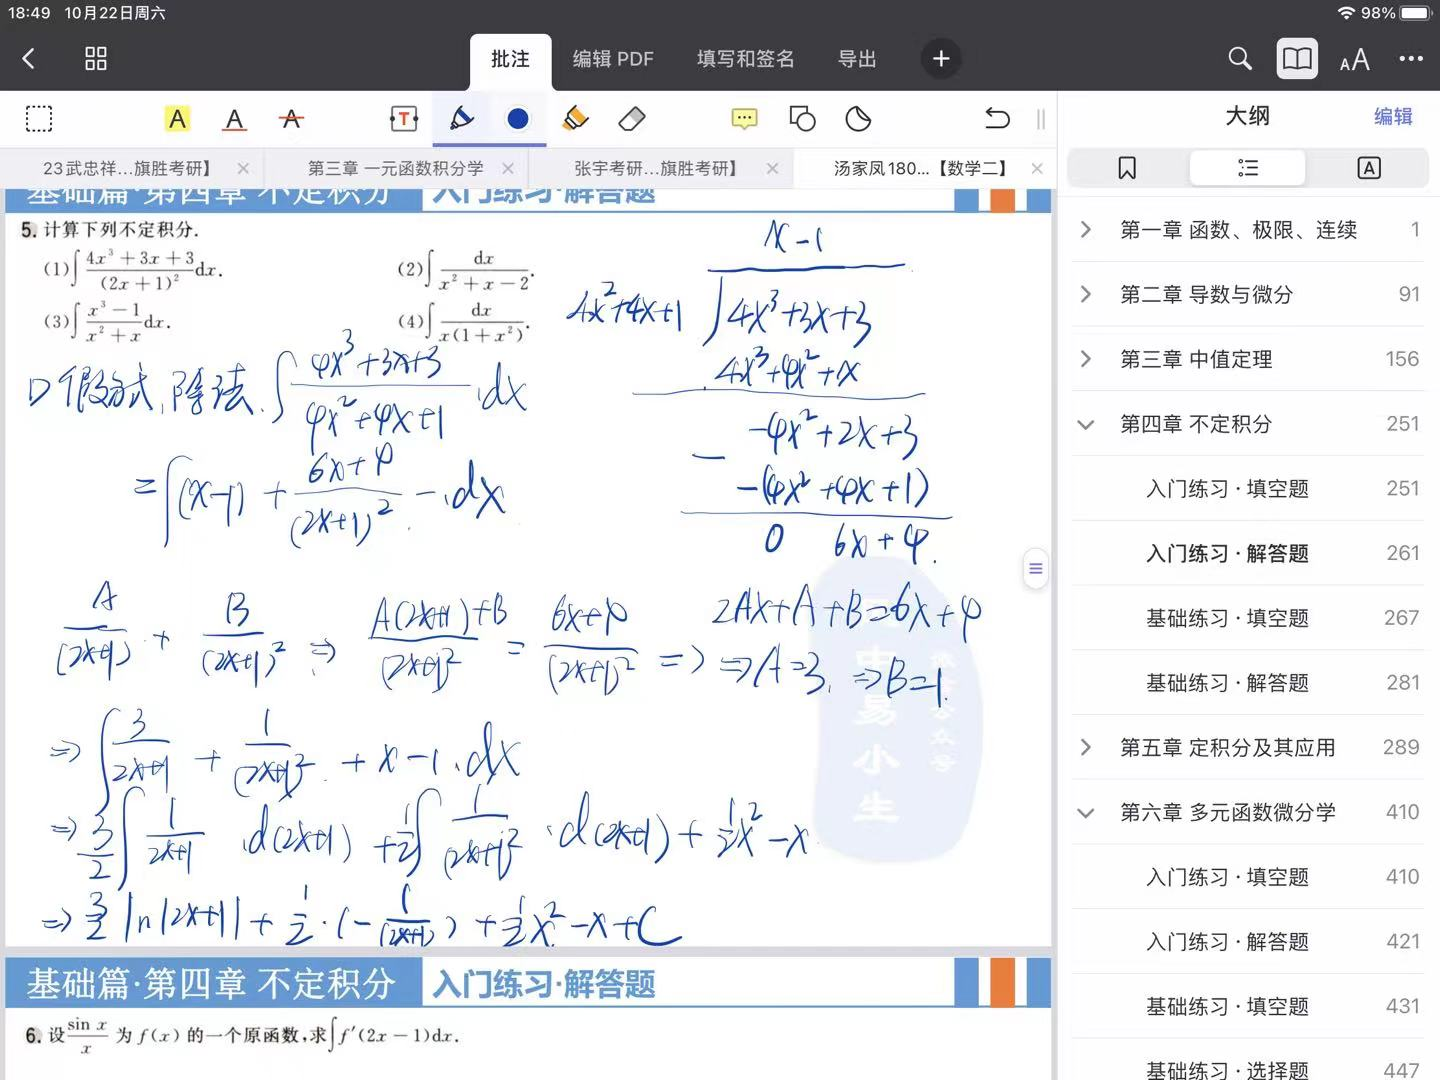 18:49 10月22日周六 98%
批注 编辑 PDF 填写和签名 导出
23武忠祥...旗胜考研】 第三章 一元函数积分学 张宇考研...旗胜考研】 汤家凤180...【数学二】
基础篇·第四章 不定积分 入门练习·解答题
5. 计算下列不定积分.
(1)∫(4x³+3x+3)/(2x+1)² dx.
(2)∫dx/(x²+x-2).
(3)∫(x³-1)/(x²+x) dx.
(4)∫dx/(x(1+x²)).
x-1
4x²+4x+1 4x³+3x+3
4x³+4x²+x
-4x²+2x+3
-
-(4x²+4x+1)
0 6x+4.
假分式,除法. ∫(4x³+3x+3)/(4x²+4x+1) ·dx
=∫(x-1)+(6x+4)/(2x+1)² ·dx
A/(2x+1) + B/(2x+1)² ⇒ (A(2x+1)+B)/(2x+1)² = (6x+4)/(2x+1)² ⇒
2Ax+A+B=6x+4
⇒A=3. ⇒B=1.
⇒∫3/(2x+1) + 1/(2x+1)² + x-1 .dx
⇒3/2∫1/(2x+1) .d(2x+1) + 1/2∫1/(2x+1)² ·d(2x+1) + 1/2x²-x
⇒3/2 ln|2x+1| + 1/2·(-1/(2x+1)) + 1/2x²-x+C
中
易
小
生
众
号
基础篇·第四章 不定积分 入门练习·解答题
6. 设 sin x/x 为 f(x) 的一个原函数,求∫f′(2x-1)dx.
大纲 编辑
第一章 函数、极限、连续 1
第二章 导数与微分 91
第三章 中值定理 156
第四章 不定积分 251
入门练习·填空题 251
入门练习·解答题 261
基础练习·填空题 267
基础练习·解答题 281
第五章 定积分及其应用 289
第六章 多元函数微分学 410
入门练习·填空题 410
入门练习·解答题 421
基础练习·填空题 431
基础练习·选择题 447